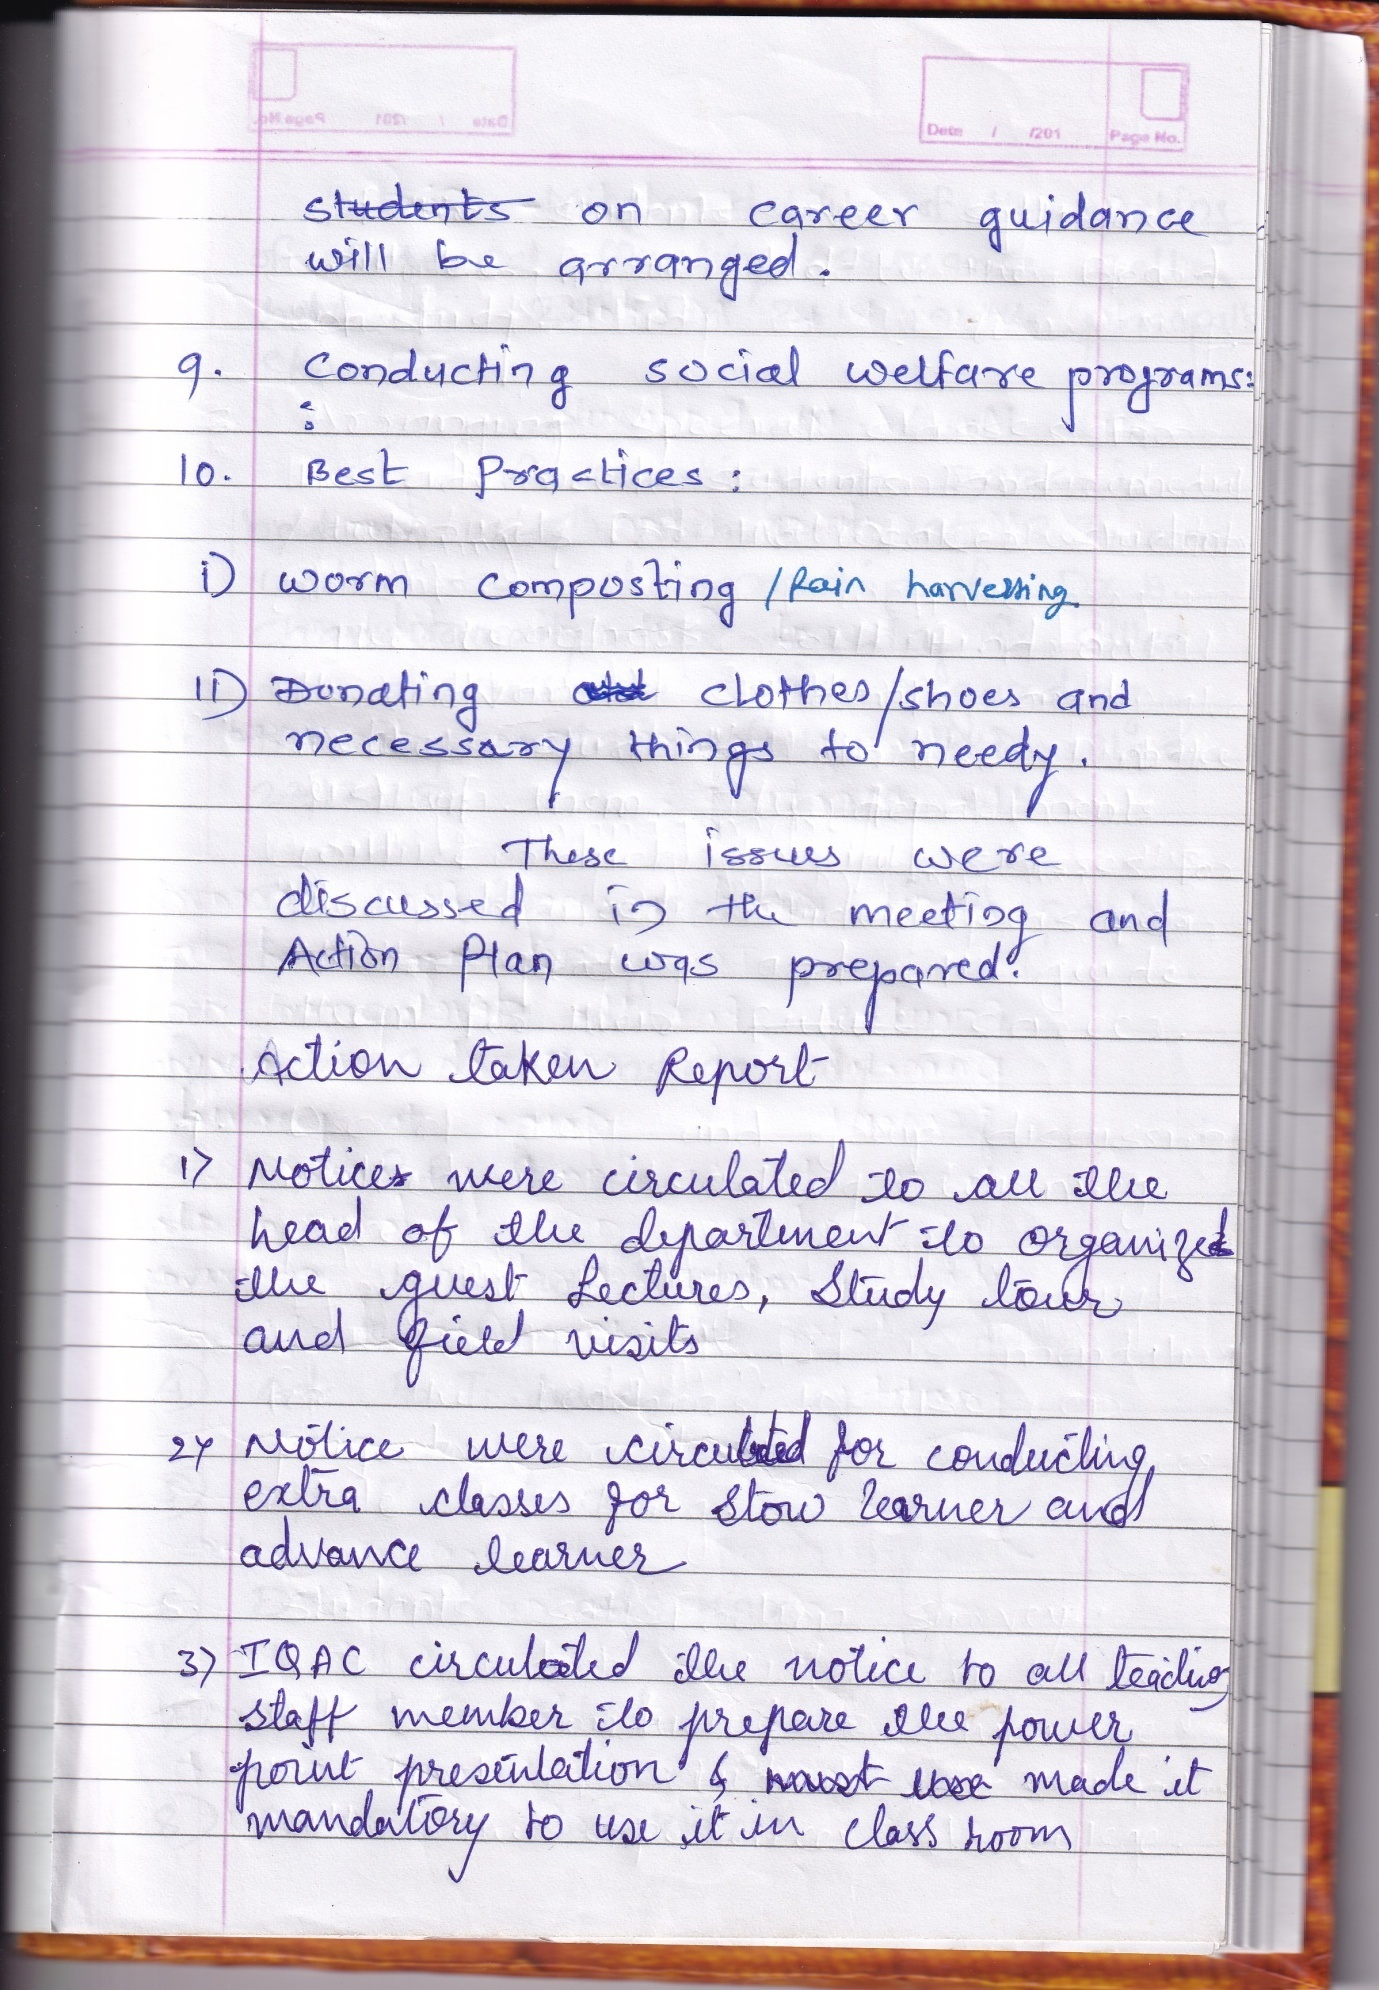 Date / /201 Page No.
students on career guidance
will be arranged.
9. Conducting social welfare programs:
:
10. Best Practices:
i) worm composting / Rain harvesting.
ii) Donating clothes/shoes and
necessary things to needy.
These issues were
discussed in the meeting and
Action Plan was prepared.
Action taken Report
1) Notices were circulated to all the
head of the department to organize
the guest Lectures, Study tour
and field visits
2) Notice were circulated for conducting
extra classes for slow learner and
advance learner
3) IQAC circulated the notice to all teaching
staff member to prepare the power
point presentation & must use made it
mandatory to use it in class room